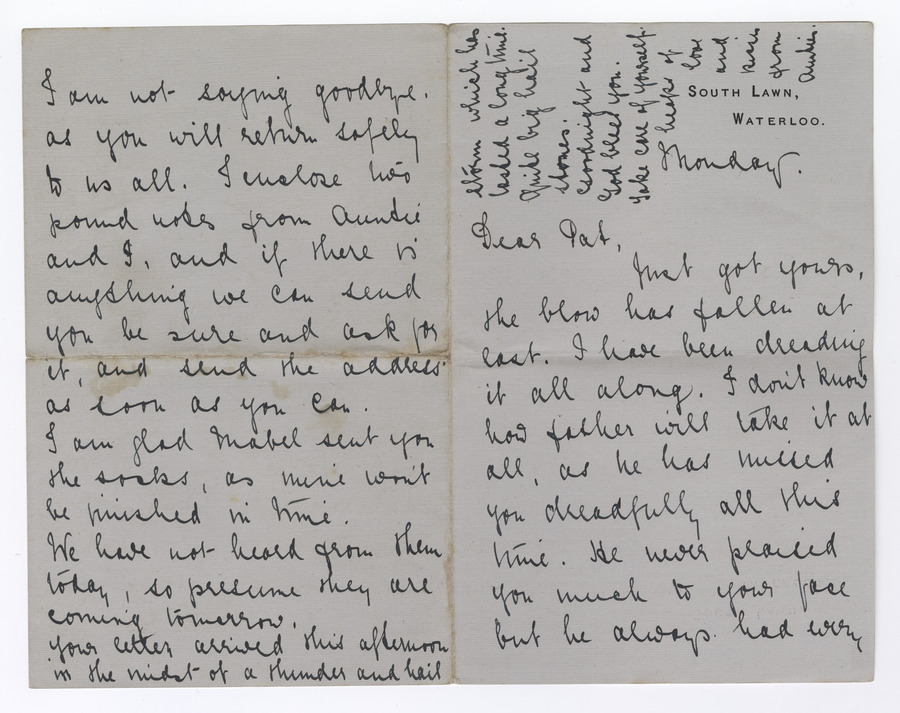 South Lawn,
Waterloo.
Monday.
Dear Pat,
Just got yours,
the blow has fallen at
last. I have been dreading
it all along. I don't know
how father will take it at
all, as he has missed
you dreadfully all this
time. He never praised
you much to your face
but he always had every
I am not saying goodbye.
as you will return safely
to us all. I enclose two
pound notes from Auntie
and I, and if there is
anything we can send
you be sure and ask for
it, and send the address
as soon as you can.
I am glad Mabel sent you
the socks, as mine won't
be finished in time.
We have not heard from them
today, so presume they are
coming tomorrow.
your letter arrived this afternoon
in the midst of a thunder and hail
storm which has
lasted a long time.
Quite big hail
stones.
Goodnight and
God bless you.
Take care of yourself.
heaps of
love
and
kisses
from
Auntie.